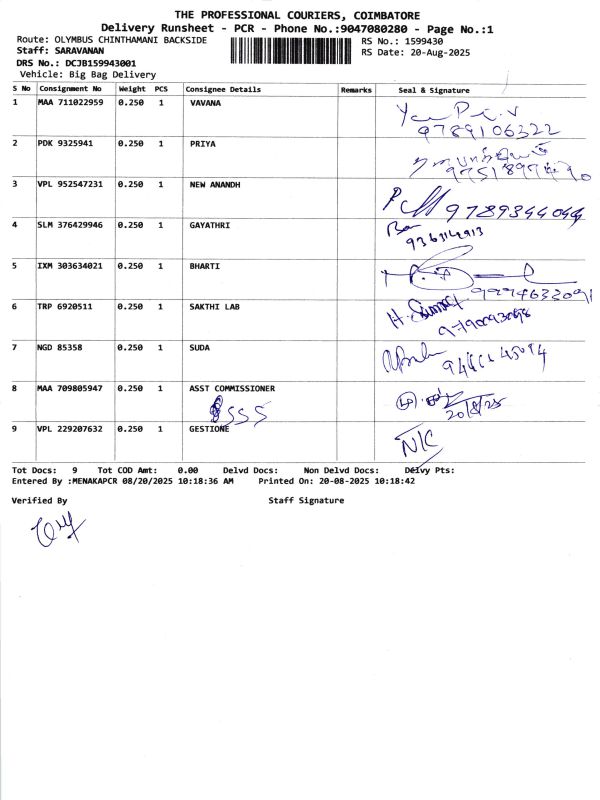 THE PROFESSIONAL COURIERS, COIMBATORE
Delivery Runsheet - PCR - Phone No.:9047080280 - Page No.:1
Route: OLYMBUS CHINTHAMANI BACKSIDE RS No.: 1599430
Staff: SARAVANAN RS Date: 20-Aug-2025
DRS No.: DCJB159943001
Vehicle: Big Bag Delivery
S No Consignment No Weight PCS Consignee Details Remarks Seal & Signature
1 MAA 711022959 0.250 1 VAVANA
9789106322
2 PDK 9325941 0.250 1 PRIYA
3 VPL 952547231 0.250 1 NEW ANANDH
4 SLM 376429946 0.250 1 GAYATHRI
5 IXM 303634021 0.250 1 BHARTI
6 TRP 6920511 0.250 1 SAKTHI LAB
7 NGD 85358 0.250 1 SUDA
8 MAA 709805947 0.250 1 ASST COMMISSIONER
20/8/25
9 VPL 229207632 0.250 1 GESTIONE N/C
Tot Docs: 9 Tot COD Amt: 0.00 Delvd Docs: Non Delvd Docs: Delvy Pts:
Entered By :MENAKAPCR 08/20/2025 10:18:36 AM Printed On: 20-08-2025 10:18:42
Verified By Staff Signature